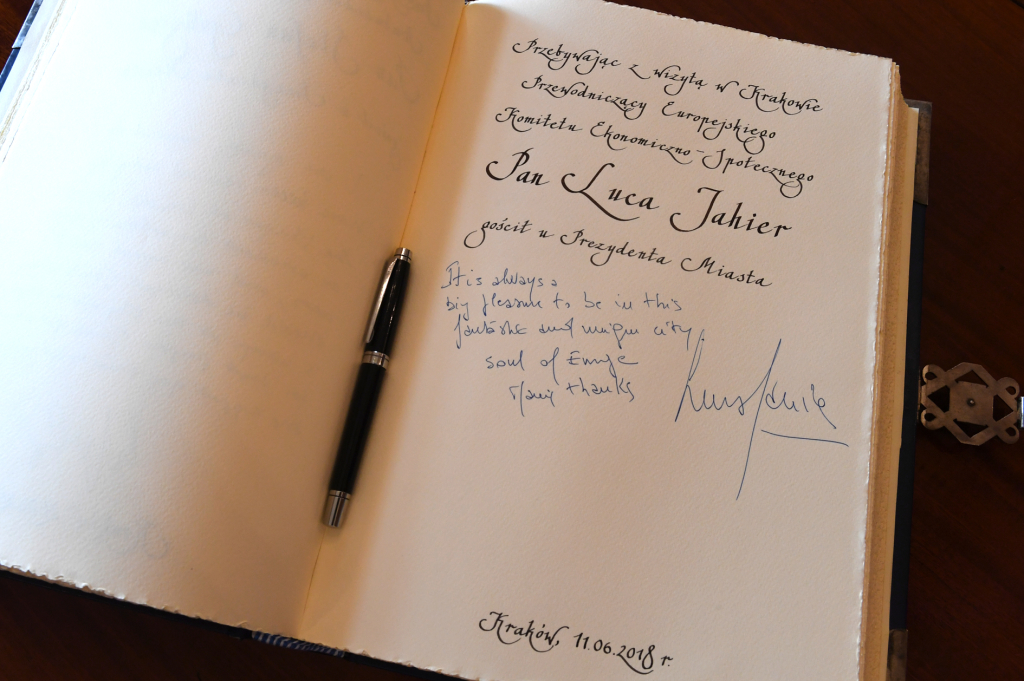 Przebywając z wizytą w Krakowie
Przewodniczący Europejskiego
Komitetu Ekonomiczno-Społecznego
Pan Luca Jahier
gościł u Prezydenta Miasta
It is always a
big pleasure to be in this
fantastic and unique city
soul of Europe
Many thanks
Kraków, 11.06.2018 r.